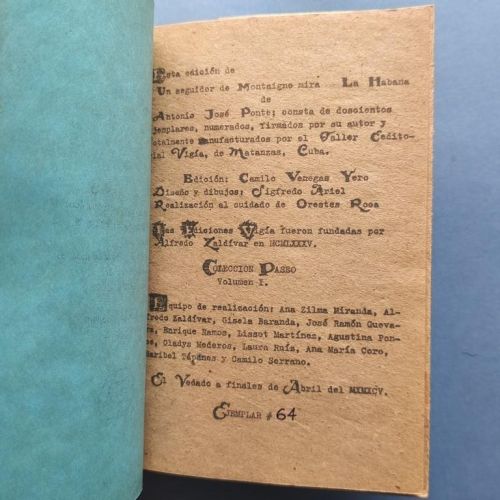 Esta edición de
Un seguidor de Montaigne mira La Habana
de
Antonio José Ponte; consta de doscientos
ejemplares, numerados, firmados por su autor y
totalmente manufacturados por el Taller Edito-
rial Vigía, de Matanzas, Cuba.
Edición: Camilo Venegas Yero
Diseño y dibujos: Sigfredo Ariel
Realización al cuidado de Orestes Roca
Las Ediciones Vigía fueron fundadas por
Alfredo Zaldívar en MCMLXXXV.
COLECCION PASEO
Volumen I.
Equipo de realización: Ana Zilma Miranda, Al-
fredo Zaldívar, Gisela Baranda, José Ramón Gueva-
ra, Enrique Ramos, Lisset Martínez, Agustina Pon-
ce, Gladys Mederos, Laura Ruiz, Ana María Coro,
Maribel Tápanes y Camilo Serrano.
El Vedado a finales de Abril del MXMXCV.
EJEMPLAR # 64